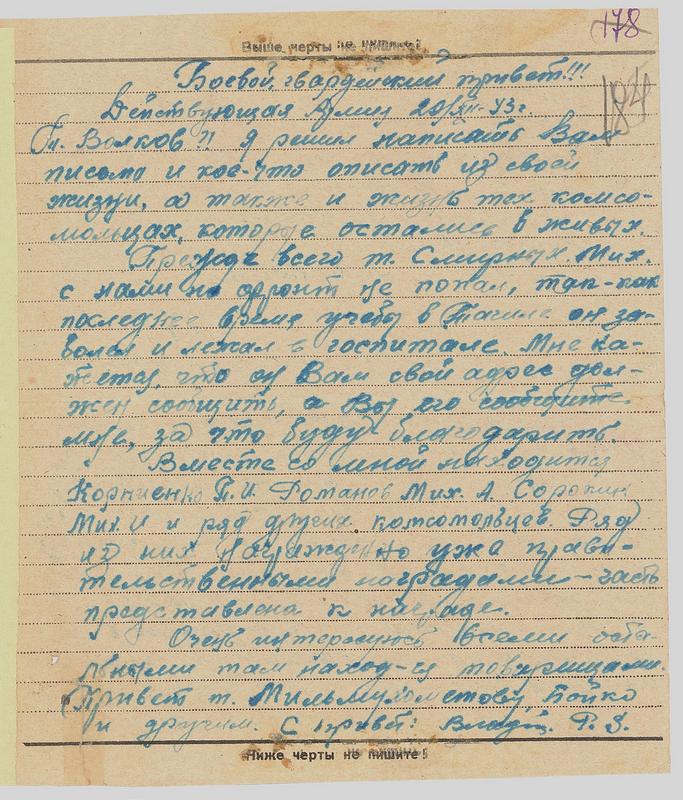 178
Выше черты не пишите!
184
Боевой гвардейский привет!!!
Действующая Армия 29/XII-43г
Волков!! Я решил написать Вам
письмо и кое-что описать из своей
жизни, а также и жизнь тех комсо-
мольцах, которые остались в живых.
Прежде всего т. Смирных. Мих.
с нами на фронт не попал, так-как
последнее время учебы в Тагиле он за-
болел и лежал в госпитале. Мне ка-
жется, что он Вам свой адрес дол-
жен сообщить, а Вы его сообщите
мне, за что буду благодарить.
Вместе со мной находится
Корниенко П.И. Романов Мих. А. Сорокин
Мих. И и ряд других комсомольцев. Ряд
из них награжденно уже прави-
тельственными наградами – часть
представлена к награде.
Очень интересуюсь всеми оста-
льными там наход-ся товарищами.
Привет т. Мильмухометову, Бойко
и другим. С привет:
Ниже черты не пишите!